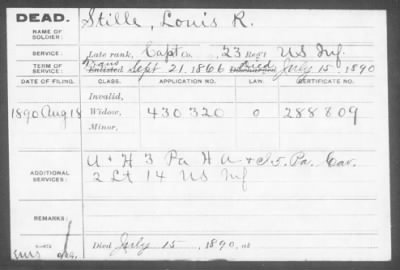 DEAD.
NAME OF SOLDIER: Stille, Louis R.
SERVICE: Late rank, Capt Co. , 23 Reg't US Inf.
TERM OF SERVICE: Trans Enlisted Sept 21, 1866 Died Discharged July 15, 1890
DATE OF FILING. CLASS. APPLICATION NO. LAW. CERTIFICATE NO.
Invalid,
1890 Aug 18 Widow, 430 320 0 288 809
Minor,
ADDITIONAL SERVICES: U + H 3 Pa H A + I 5. Pa. Cav.
2 Lt 14 US Inf
REMARKS:
Died July 15, 1890, at